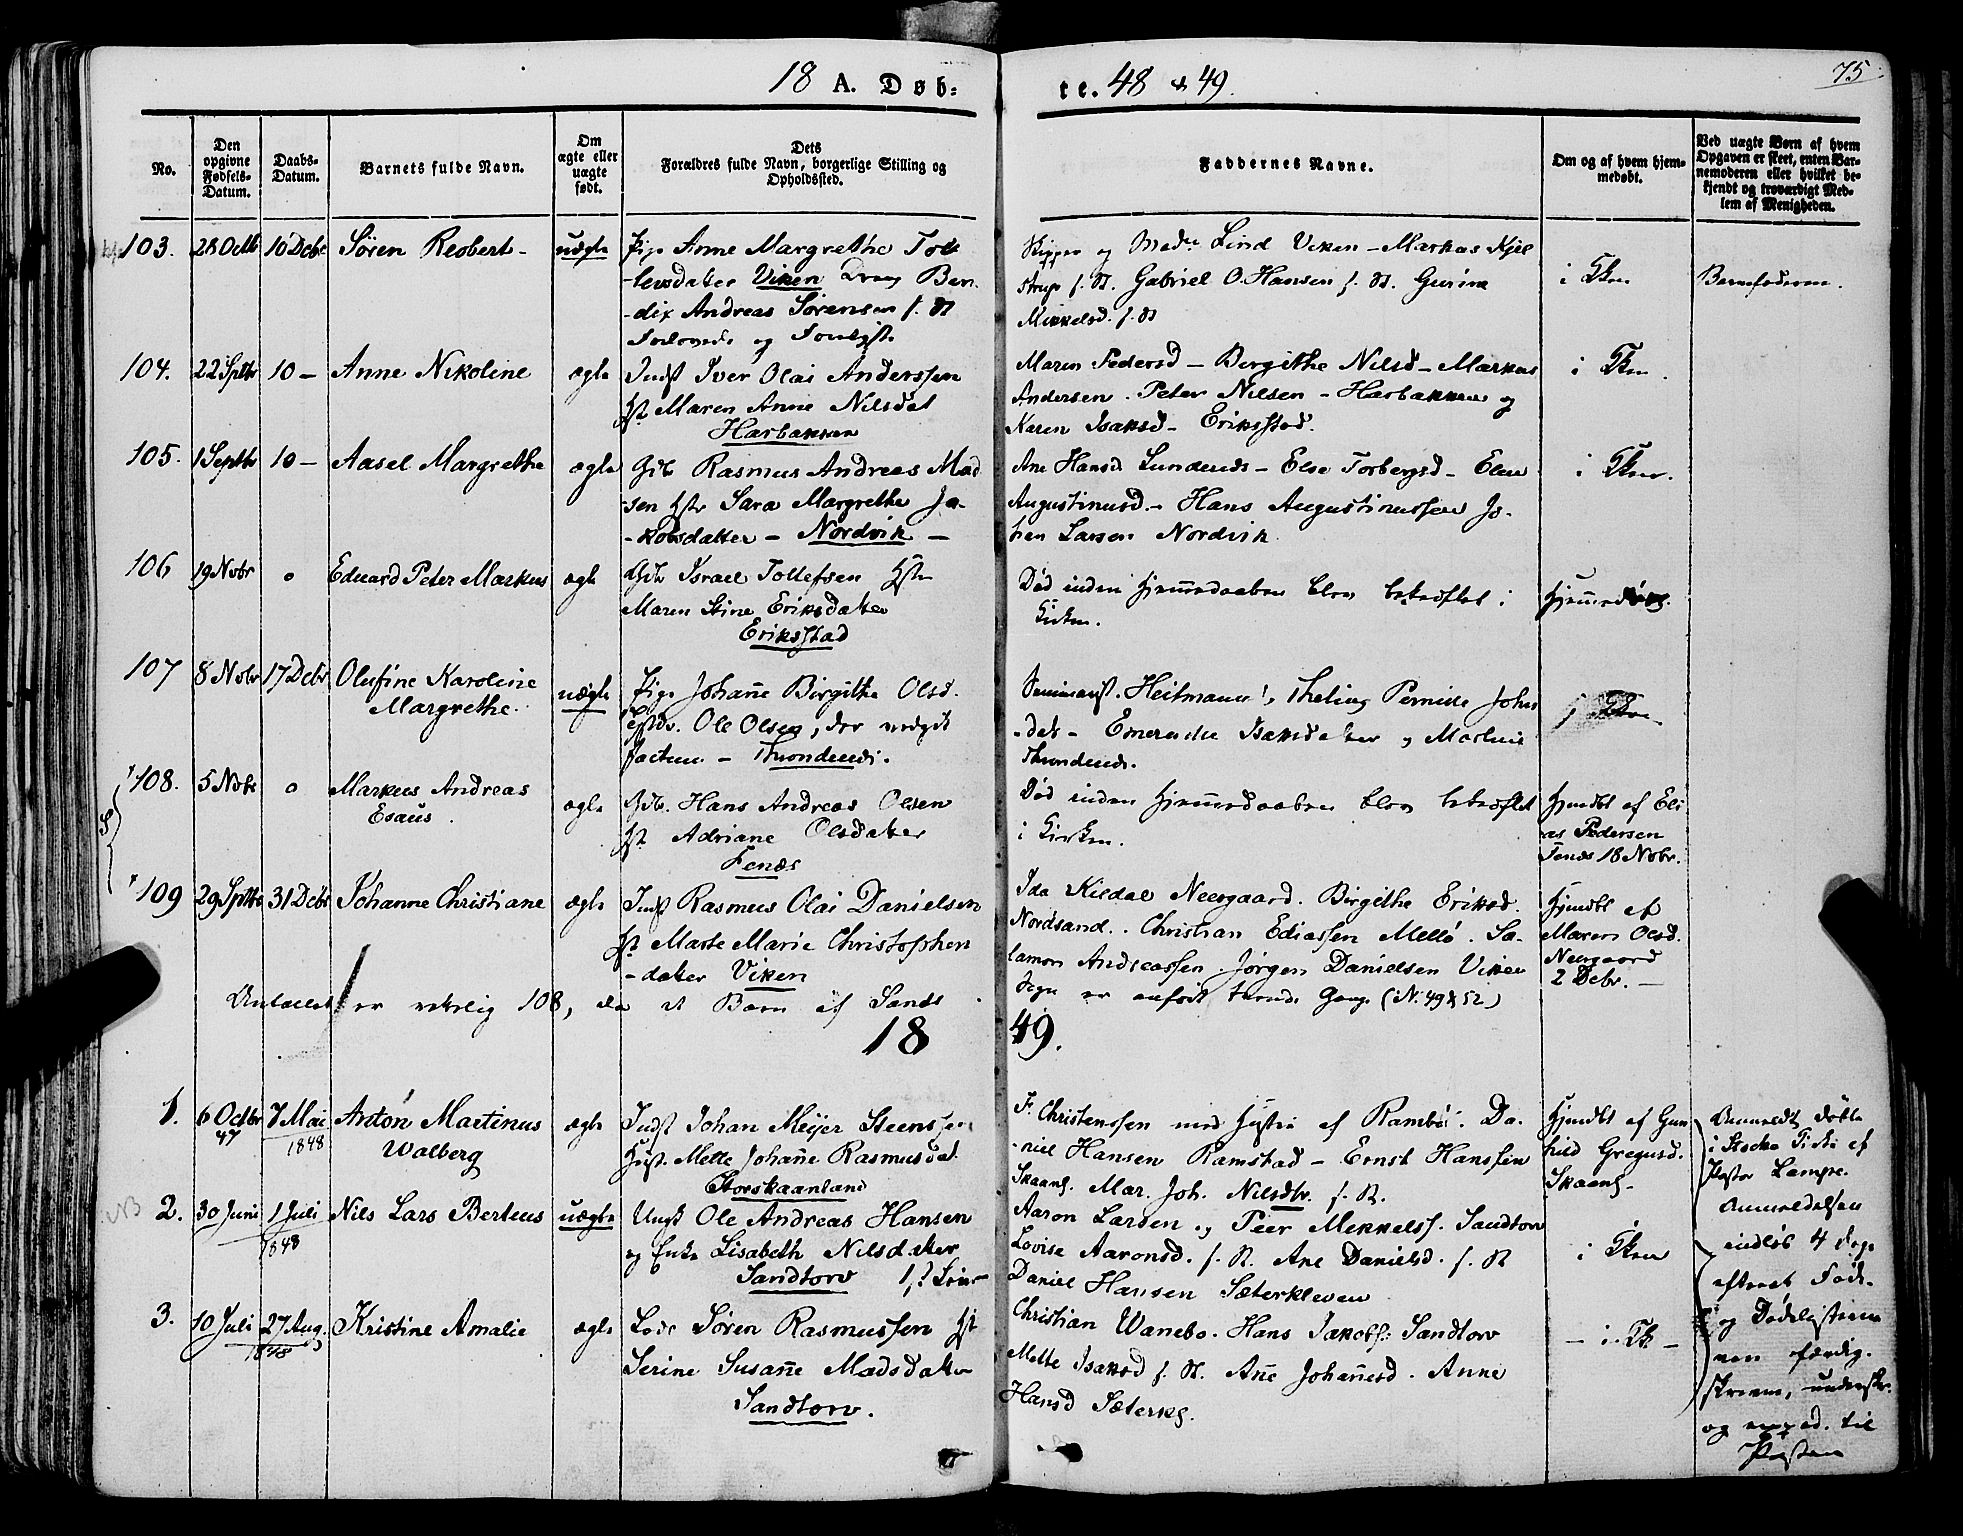 18 A. Døb: te. 48 & 49.
75
No.
Den opgivne Fødsels-Datum.
Daabs-Datum.
Barnets fulde Navn.
Om ægte eller uægte født.
Dets Forældres fulde Navn, borgerlige Stilling og Opholdssted.
Faddernes Navne.
Om og af hvem hjemmedøbt.
Ved uægte Børn af hvem Opgaven er skeet, enten Barnemoderen eller hvilket bekjendt og troværdigt Medlem af Menigheden.
103. 28 Octb 10 Debr Søren Reobert - uægte Pige Anne Margrethe Tol
-levsdatter Viken Dreng Ben
-dix Andreas Sørensen f. St
og
Skipper og Mad. Lind Viken - Markus Kjel
strup f. St. Gabriel O. Hansen f. St. Gurine
Mikkelsd. f. St
i Kken
Barnefaderen.
104. 22 Sptbr 10 - Anne Nikoline ægte Indst Iver Olai Anderssen
Hst Maren Anne Nilsdat
Harbakken
Maren Pedersd - Birgithe Nilsd - Markus
Andersen. Peter Nilsen - Harbakken og
Karen Isaksd - Eriksstad.
i Kken
105. 1 Septbr 10 - Aasel Margrethe ægte Gdb Rasmus Andreas Mad
sen Hstr Sara Margrethe Ja-
-kobsdatter - Nordvik -
Ane Hansd Sundends - Else Torbergsd - Elen
Augustinusd - Hans Augustinussen Jo-
hen Larsen Nordvik
i Kken.
106 19 Nobr o Eduard Peter Markus ægte Gdb Israel Tollefsen Hstr
Maren Stine Eriksdatter
Eriksstad
Død inden Hjemmedaaben blev bekræftet i
Kirken.
107 8 Nobr 17 Debr Olufine Karoline
Margrethe. uægte Pige Johañe Birgithe Olsd.
Ole Olsen, der
factum - Throndenes.
Seminarist. Heitmann, Theling Pernille Johns
-dat - Emerentse Isaksdatter og
Throndends.
i Kken
108. 5 Nobr o Markus Andreas
Esaüs. ægte Gdb. Hans Andreas Olsen
Hst Adriane Olsdatter
Fenæs
Død inden Hjemmedaaben blev bekræftet
i Kirken.
Hjmdbt af Eli
as Pedersen
Fenæs 18 Nobr.
109 29 Sptbr 31 Debr Johanne Christiane ægte Indst Rasmus Olai Danielsen
Hst Marte Marie Christophen
-datter Viken
Ida Kildal Neergaard. Birgithe Eriksd.
Nordsand. Christian Ediassen Mellø. Sa-
lamon Andreassen. Jørgen Danielsen Viken
Hjmdbt af
Maren Olsd.
Neergaard
2 Debr. -
Antallet er 108, da et Barn af Sands
Sogn er anført tvende Gange (N. 49 & 52)
18 49.
1. 6 Octbr 47 7 Mai 1848 Anton Martinus
Walberg ægte Indst Johan Meÿer Steenssen
Hust. Mette Johañe Rasmusdat
Storskaanland
F. Christenssen med Hustru af Rambø. Da-
-niel Hansen Ramstad - Ernst Hanssen
Skaanl. Mar. Joh. Nilsdtr. f. St.
Hjmdbt af Gun
hild Gregusd.
Skaanl -
Anmeldt døbte
i Kirke af
Pastor Lampe.
NB 2. 30 Juni 1 Juli 1848 Nils Lars Berteus uægte Ungk Ole Andreas Hansen
og Enke Lisabeth Nilsdatter
Sandtorv
Aaron Larsen og Peer Mikkels. Sandtorv
Lovise Aaronsd. f. St. Ane Danielsd. f. St
Daniel Hansen Sæterkleven
i Kken
Anmeldelsen
indløb 4 Dage
efterat Føde-
og Dødelisterne
var færdig-
skrevne,
og til
3. 10 Juli 27 Aug. 1848 Kristine Amalie ægte Lods Søren Rasmussen Hst
Serine Susañe Madsdatter
Sandtorv.
Christian Wanebo. Hans Jakobs: Sandtorv
Mette Isaksd f. St. Añe Johañesd. Anne
Hansd Sæterkl.
- i Kk -